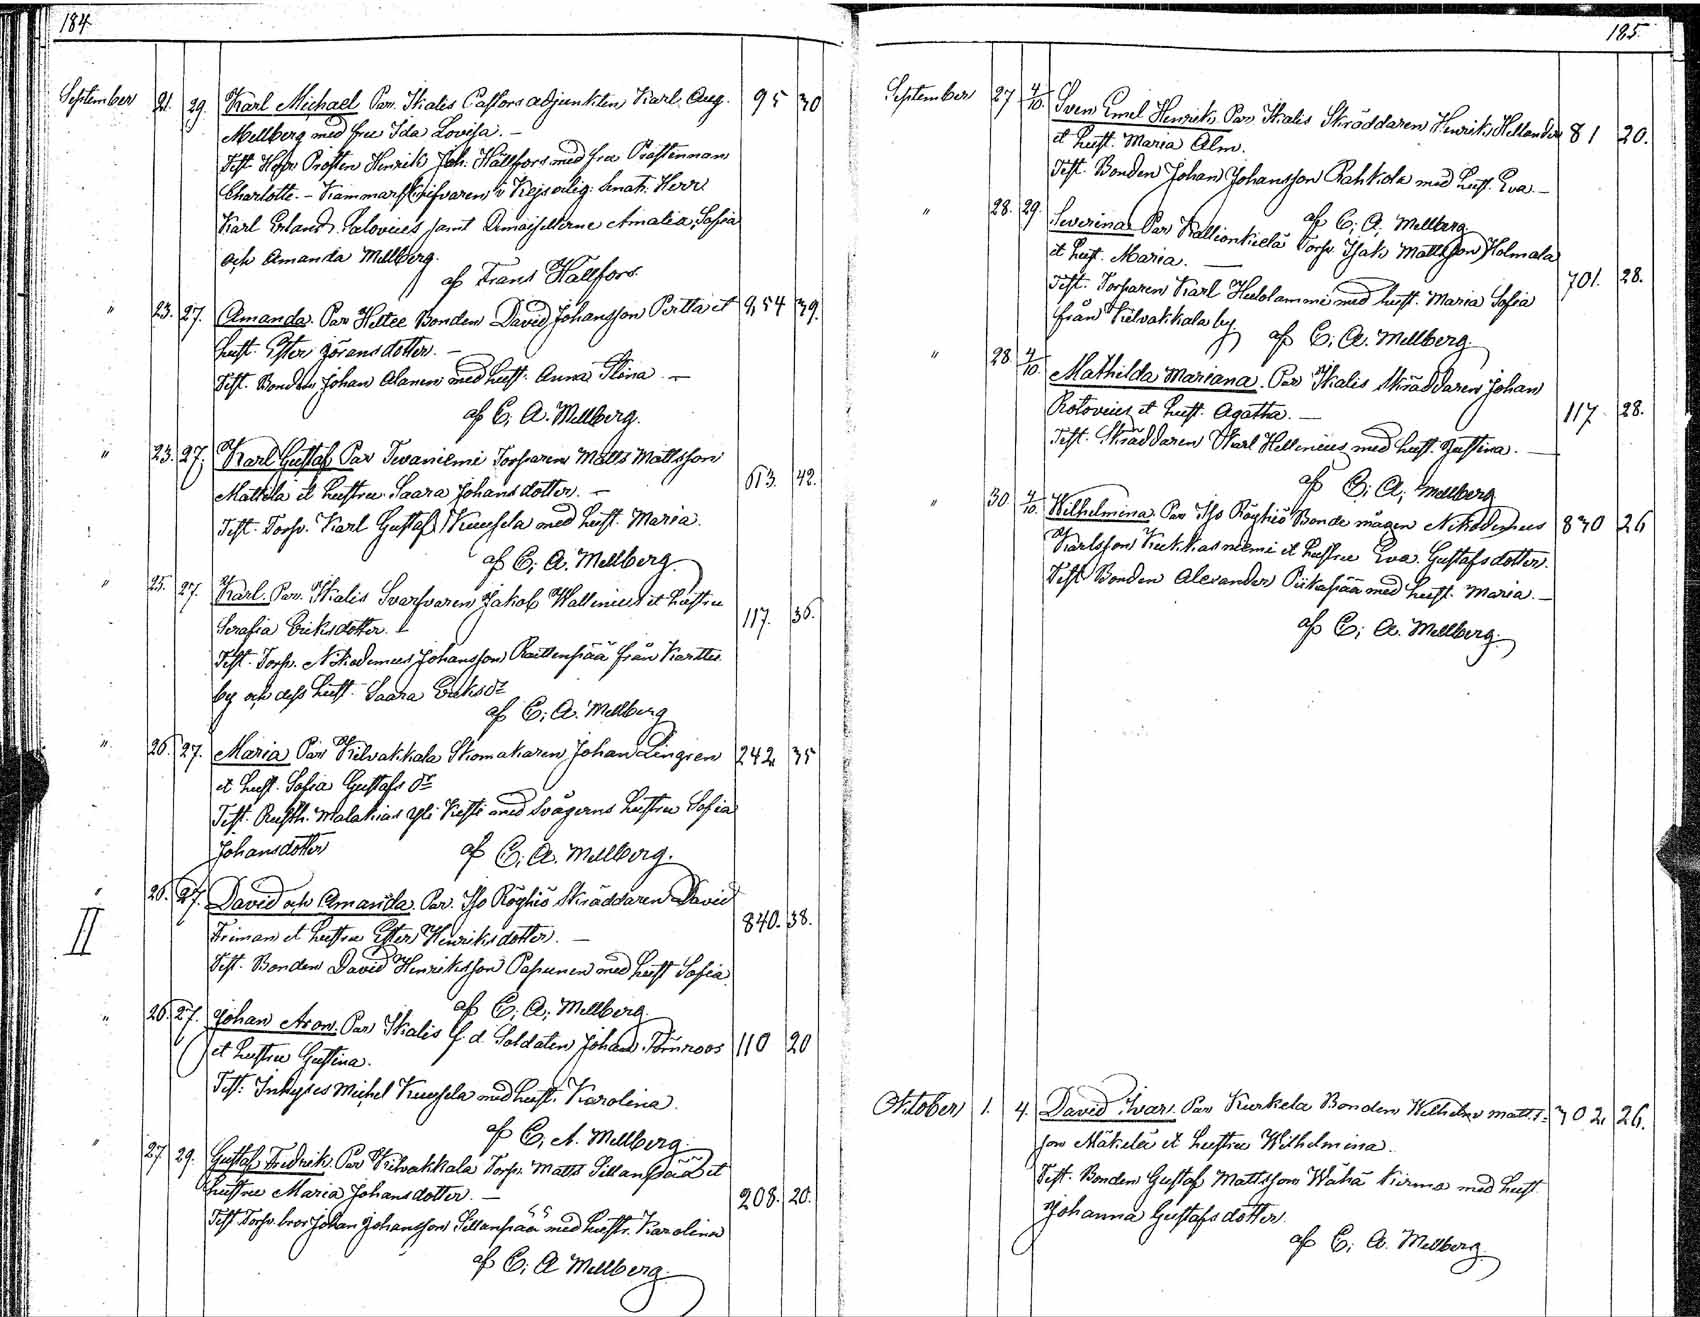 184
September 21. 29. Karl Michael Par. Ikalis Pastors adjunkten Karl Aug. 95 30
Mellberg med fru Ida Lovisa. –
Test. Herr Prosten Henrik Joh. Hällfors med fru Prostinnan
Charlotte. – Kammarskrifvaren
Karl Erland Palovius samt Demoisellerne Amalia, Sofia
och Amanda Mellberg.
af Frans Hällfors
" 23. 27. Amanda. Par Hettee Bonden David Johansson Perttu et 954 39.
hust. Ester Göransdotter. –
Test. Bonden Johan Alanen med hust. Anna Stina. –
af C. A. Mellberg.
" 23. 27. Karl Gustaf Par Tevaniemi Torparen Matts Mattsson
Mattila et hustru Saara Johansdotter. – 613. 42.
Test. Torp. Karl Gustaf Kuusela med hust. Maria.
af C. A. Mellberg.
" 25. 27. Karl. Par. Ikalis Svarfvaren Jakob Wallenius et hustru
Serafia Eriksdotter. – 117. 36.
Test. Torp. Nikodemus Johansson Raittenpää från Karttu
by och dess hust. Saara Eriksdr
af C. A. Mellberg
" 26. 27. Maria Par Kilvakkala Skomakaren Johan Lingren 242 35
et hust. Sofia Gustafs dr
Test. Rusth. Malakias Yli Kesti med Svågerns hustru Sofia
Johansdotter af C. A. Mellberg.
" 26. 27. David och Amanda. Par. Iso Röyhiö Skräddaren David
II Friman et hustru Ester Henriksdotter. – 840. 38.
Test. Bonden David Henriksson Papunen med hust Sofia.
af C. A. Mellberg.
" 26. 27. Johan Aron. Par Ikalis f. d. Soldaten Johan Törnroos 110 20
et hustru Gustina.
Test: Inhyses Michel Kuusela med hust. Karolina.
af C. A. Mellberg.
" 27 29. Gustaf Fredrik. Par Kilvakkala Torp. Matts Sillanpää et
hustru Maria Johansdotter. – 208. 20.
Test Torp. bror Johan Johansson Sillanpää med hustr. Karolina
af C. A Mellberg.
185.
September 27 4/10. Sven Emel Henrik Par Ikalis Skräddaren Henrik Hellander 81 20.
et hust. Maria Alm.
Test. Bonden Johan Johansson Rahkola med hust. Eva –
af C. A. Mellberg.
" 28. 29. Severina. Par Kallionkielä Torp. Isak Mattsson Holmala
et hust. Maria. – 701. 28.
Test. Torparen Karl Hulolammi med hust. Maria Sofia
från Kilvakkala by. af C. A. Mellberg.
" 28 4/10. Mathilda Mariana. Par Ikalis Skräddaren Johan
Rotovius et hust. Agatha. – 117 28.
Test. Skräddaren Karl Hellenius med hust. Justina. –
af C. A. Mellberg
" 30 4/10. Wilhelmina. Par Iso Röyhiö Bonde mågen Nikodemus 830 26
Karlsson Kukkasniemi et hustru Eva Gustafsdotter.
Test Bonden Alexander Pirkapää med hust. Maria. –
af C. A. Mellberg.
Oktober 1. 4. David Ivar. Par Kurkela Bonden Wilhelm Matts= 702 26.
son Mäkelä et hustru Wilhelmina.
Test. Bonden Gustaf Mattsson Wähä Kirma med hust
Johanna Gustafsdotter.
af C. A. Mellberg.